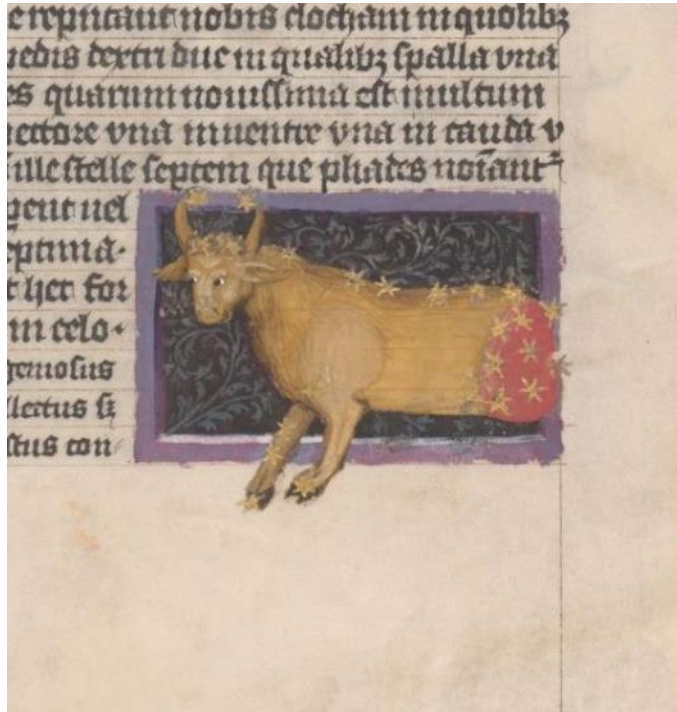 e reputant nobis clocham in quolibꝫ
pedis dextri due in qualibꝫ spalla vna
es quarum nouissima est multum
pectore vna in uentre vna in cauda v
ille stelle septem que pliades noīant
uel
eptima·
t hec for
in celo·
geniosus
llectus
stus con